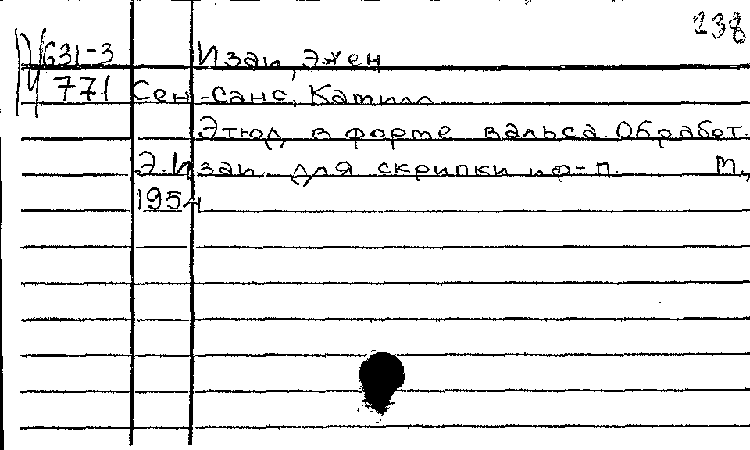 238
М631-3 Изаи, Эжен
М771 Сен-Санс, Камилл
Этюд в форме вальса. Обработ.
Э. Изаи для скрипки и ф-п. М.,
1954